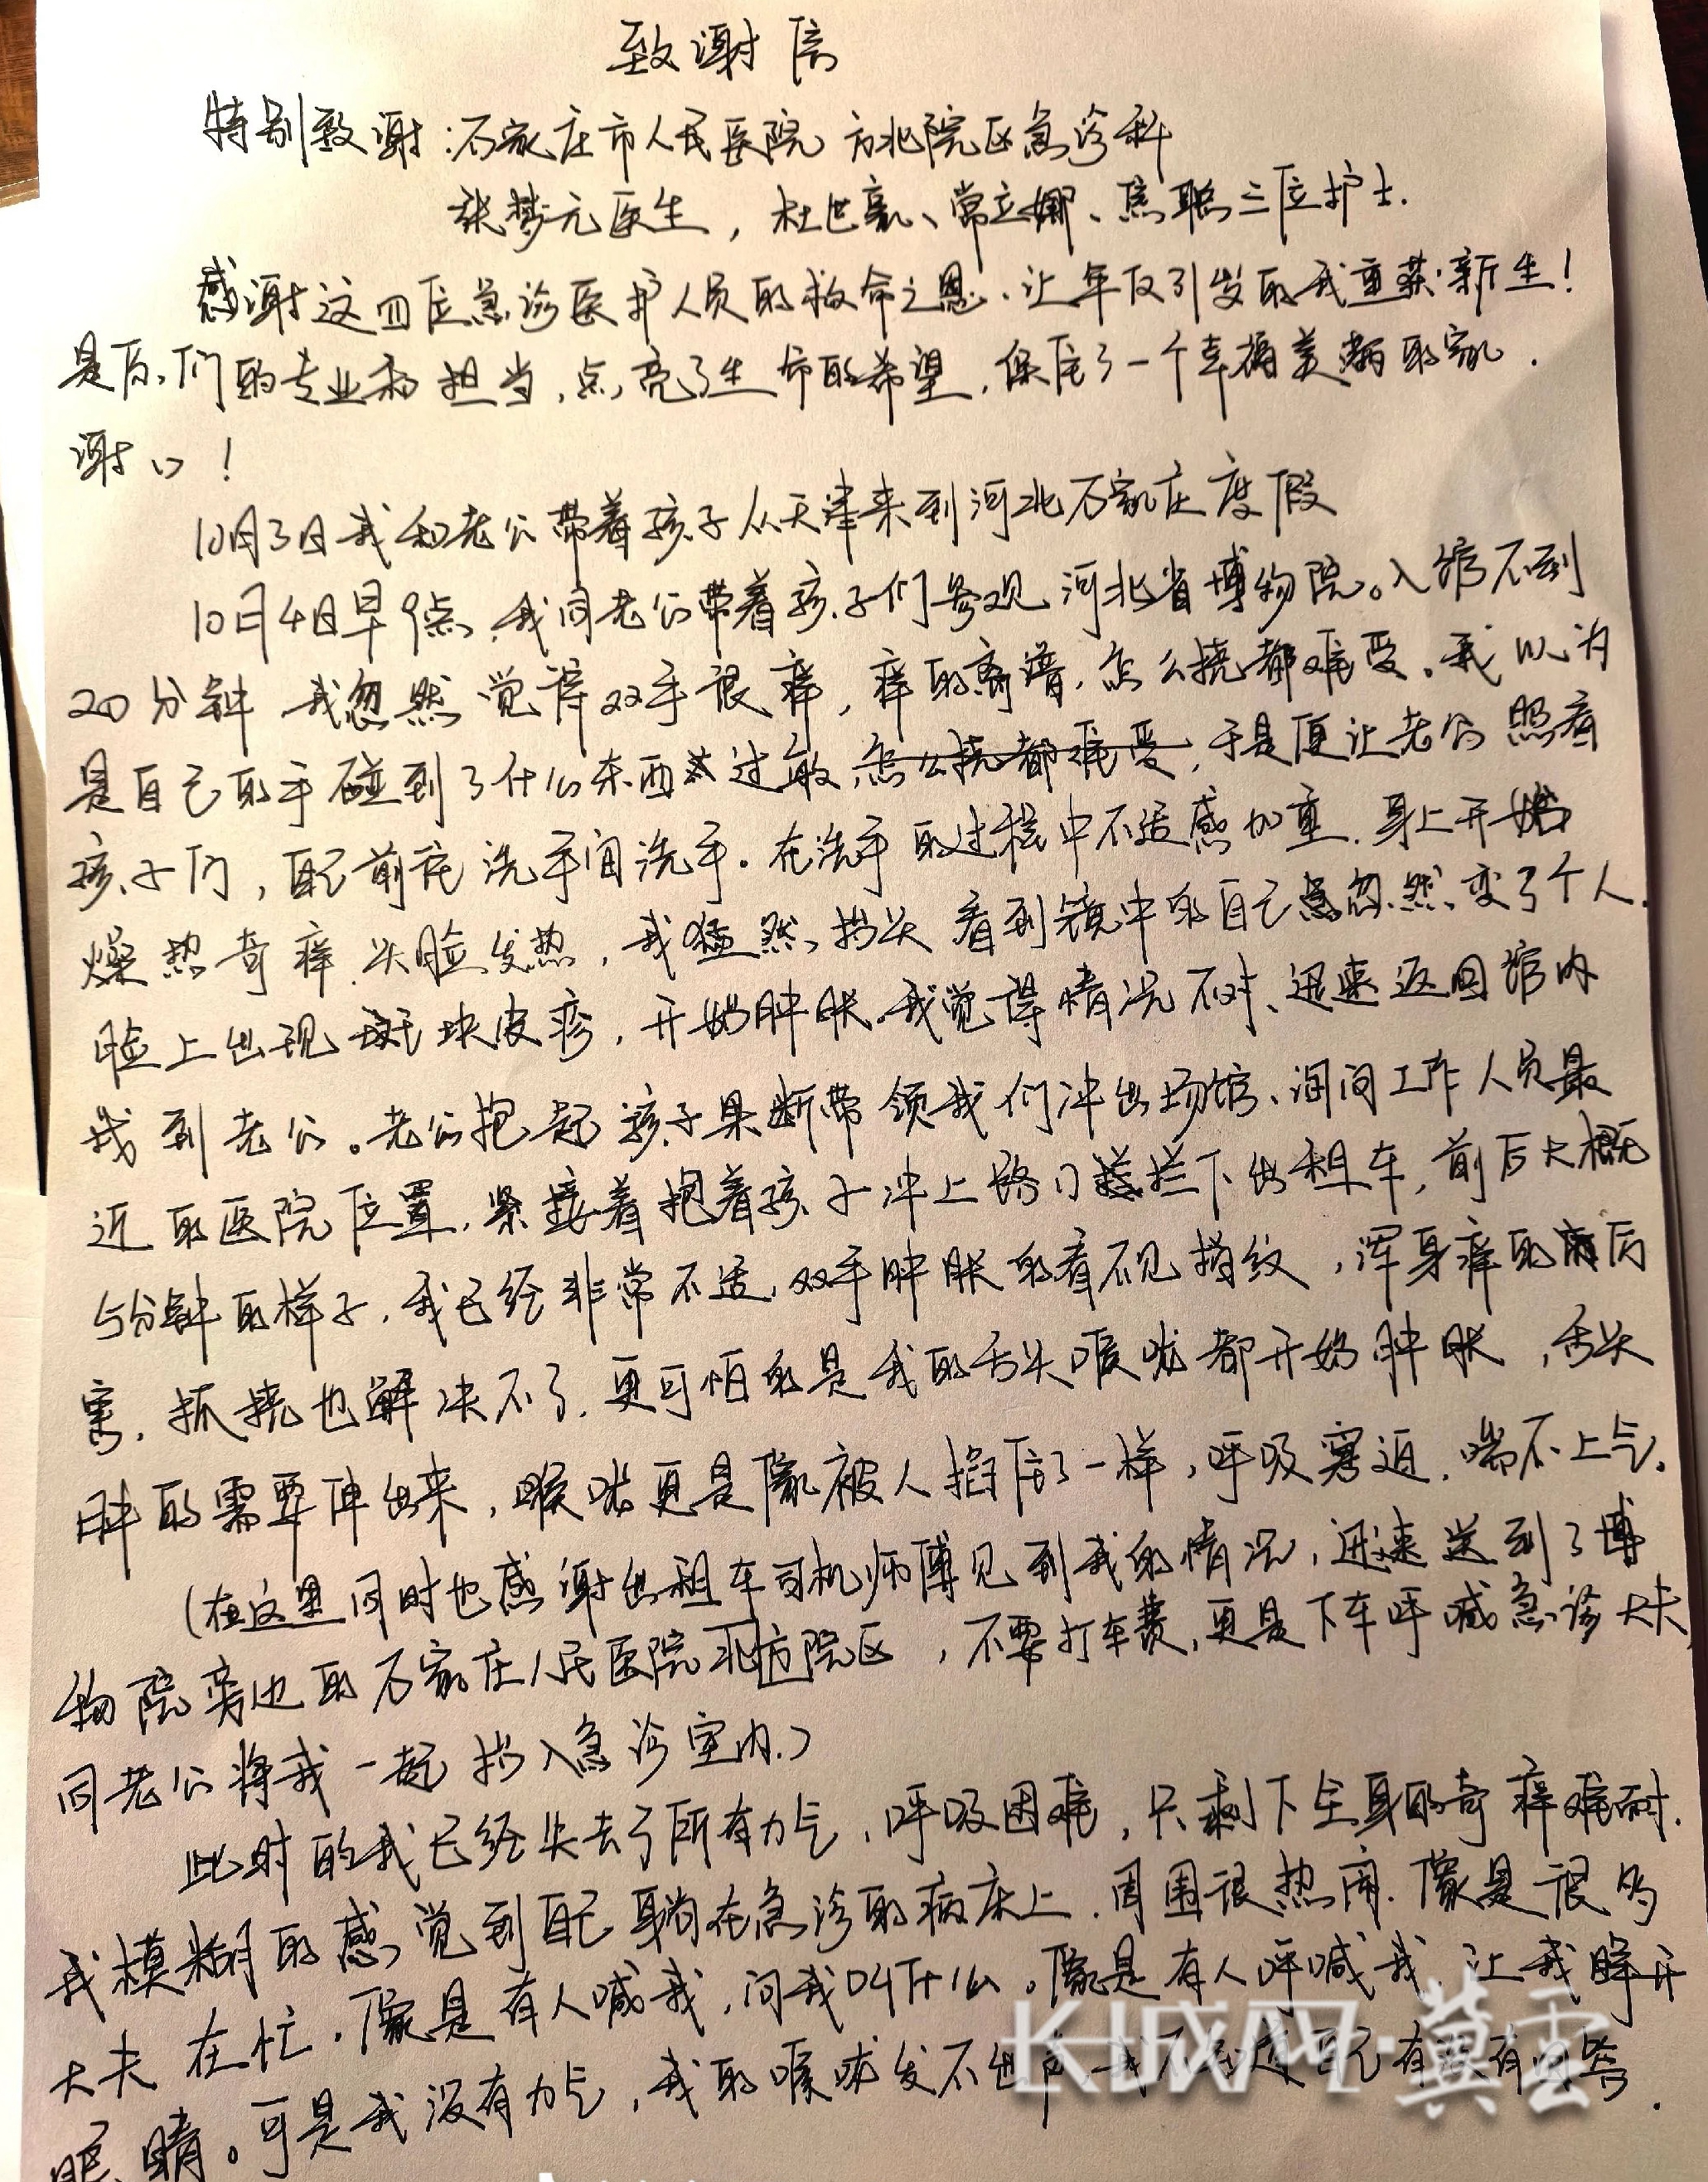 致谢信
特别致谢：石家庄市人民医院 方北院区急诊科
张梦元医生，杜世豪、常立娜、焦聪三位护士.
感谢这四位急诊医护人员的救命之恩、让年仅引发的我重获新生！
是你们的专业和担当，点亮了生命的希望，保住了一个幸福美满的家.
谢谢！
10月3日我和老公带着孩子从天津来到河北石家庄度假
10月4日早9点，我同老公带着孩子们参观河北省博物院。入馆不到
20分钟 我忽然觉得双手很痒，痒的离谱，怎么挠都难受。我以为
是自己的手碰到了什么东西过敏，怎么挠都难受，于是便让老公照看
孩子们，自己前往洗手间洗手。在洗手的过程中不适感加重.身上开始
燥热奇痒.头脸发热，我猛然抬头看到镜中的自己忽然变了个人.
脸上出现斑块皮疹，开始肿胀.我觉得情况不对、迅速返回馆内
找到老公。老公抱起孩子果断带领我们冲出场馆、询问工作人员最
近的医院位置，紧接着抱着孩子冲上路口拦下出租车，前后大概
5分钟的样子，我已经非常不适，双手肿胀的看不见指纹，浑身痒的厉
害，抓挠也解决不了.更可怕的是我的舌头喉咙都开始肿胀，舌头
肿的需要伸出来，喉咙更是像被人掐住了一样，呼吸窘迫.喘不上气.
(在这里同时也感谢出租车司机师傅见到我的情况，迅速送到了博
物院旁边的石家庄人民医院北方院区，不要打车费，更是下车呼喊急诊大夫
同老公将我一起抬入急诊室内.)
此时的我已经失去了所有力气，呼吸困难，只剩下全身的奇痒难耐.
我模糊的感觉到自己躺在急诊的病床上.周围很热闹.像是很多
大夫在忙.像是有人喊我，问我叫什么。像是有人呼喊我，让我睁开
眼睛。可是我没有力气，我的喉咙发不出声，我不知道自己有没有回答.
KJXM·冀雲